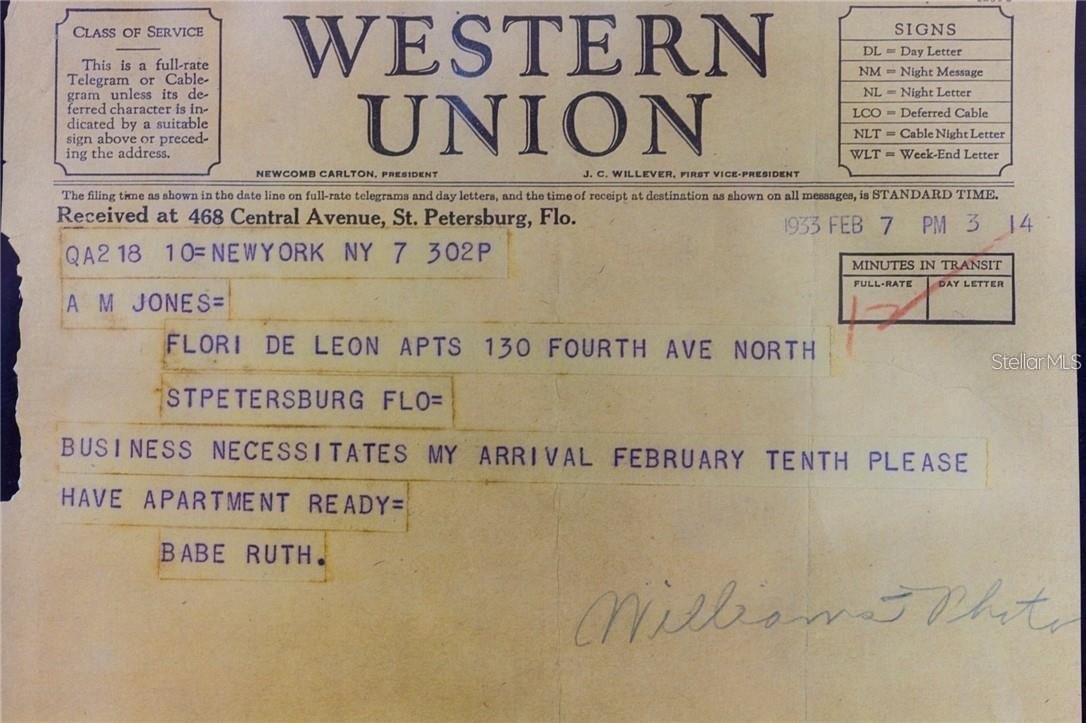 CLASS OF SERVICE
This is a full-rate
Telegram or Cable-
gram unless its de-
ferred character is in-
dicated by a suitable
sign above or preced-
ing the address.
WESTERN
UNION
NEWCOMB CARLTON, PRESIDENT
J. C. WILLEVER, FIRST VICE-PRESIDENT
SIGNS
DL = Day Letter
NM = Night Message
NL = Night Letter
LCO = Deferred Cable
NLT = Cable Night Letter
WLT = Week-End Letter
The filing time as shown in the date line on full-rate telegrams and day letters, and the time of receipt at destination as shown on all messages, is STANDARD TIME.
Received at 468 Central Avenue, St. Petersburg, Flo.
1933 FEB 7 PM 3 14
QA218 10=NEWYORK NY 7 302P
MINUTES IN TRANSIT
FULL-RATE
DAY LETTER
12
A M JONES=
FLORI DE LEON APTS 130 FOURTH AVE NORTH
StellarMLS
STPETERSBURG FLO=
BUSINESS NECESSITATES MY ARRIVAL FEBRUARY TENTH PLEASE
HAVE APARTMENT READY=
BABE RUTH.
Williams Photo